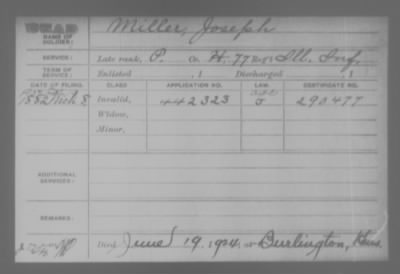 DEAD
NAME OF SOLDIER: Miller, Joseph
SERVICE: Late rank, P. Co. H. 77 Reg't Ill. Inf.
TERM OF SERVICE: Enlisted , 1 Discharged , 1
DATE OF FILING. CLASS. APPLICATION NO. LAW. CERTIFICATE NO.
1882 Mch 8 Invalid, 442323 J 290477
Widow,
Minor,
ADDITIONAL SERVICES:
REMARKS:
Died June 19, 1924, at Burlington, Kans.